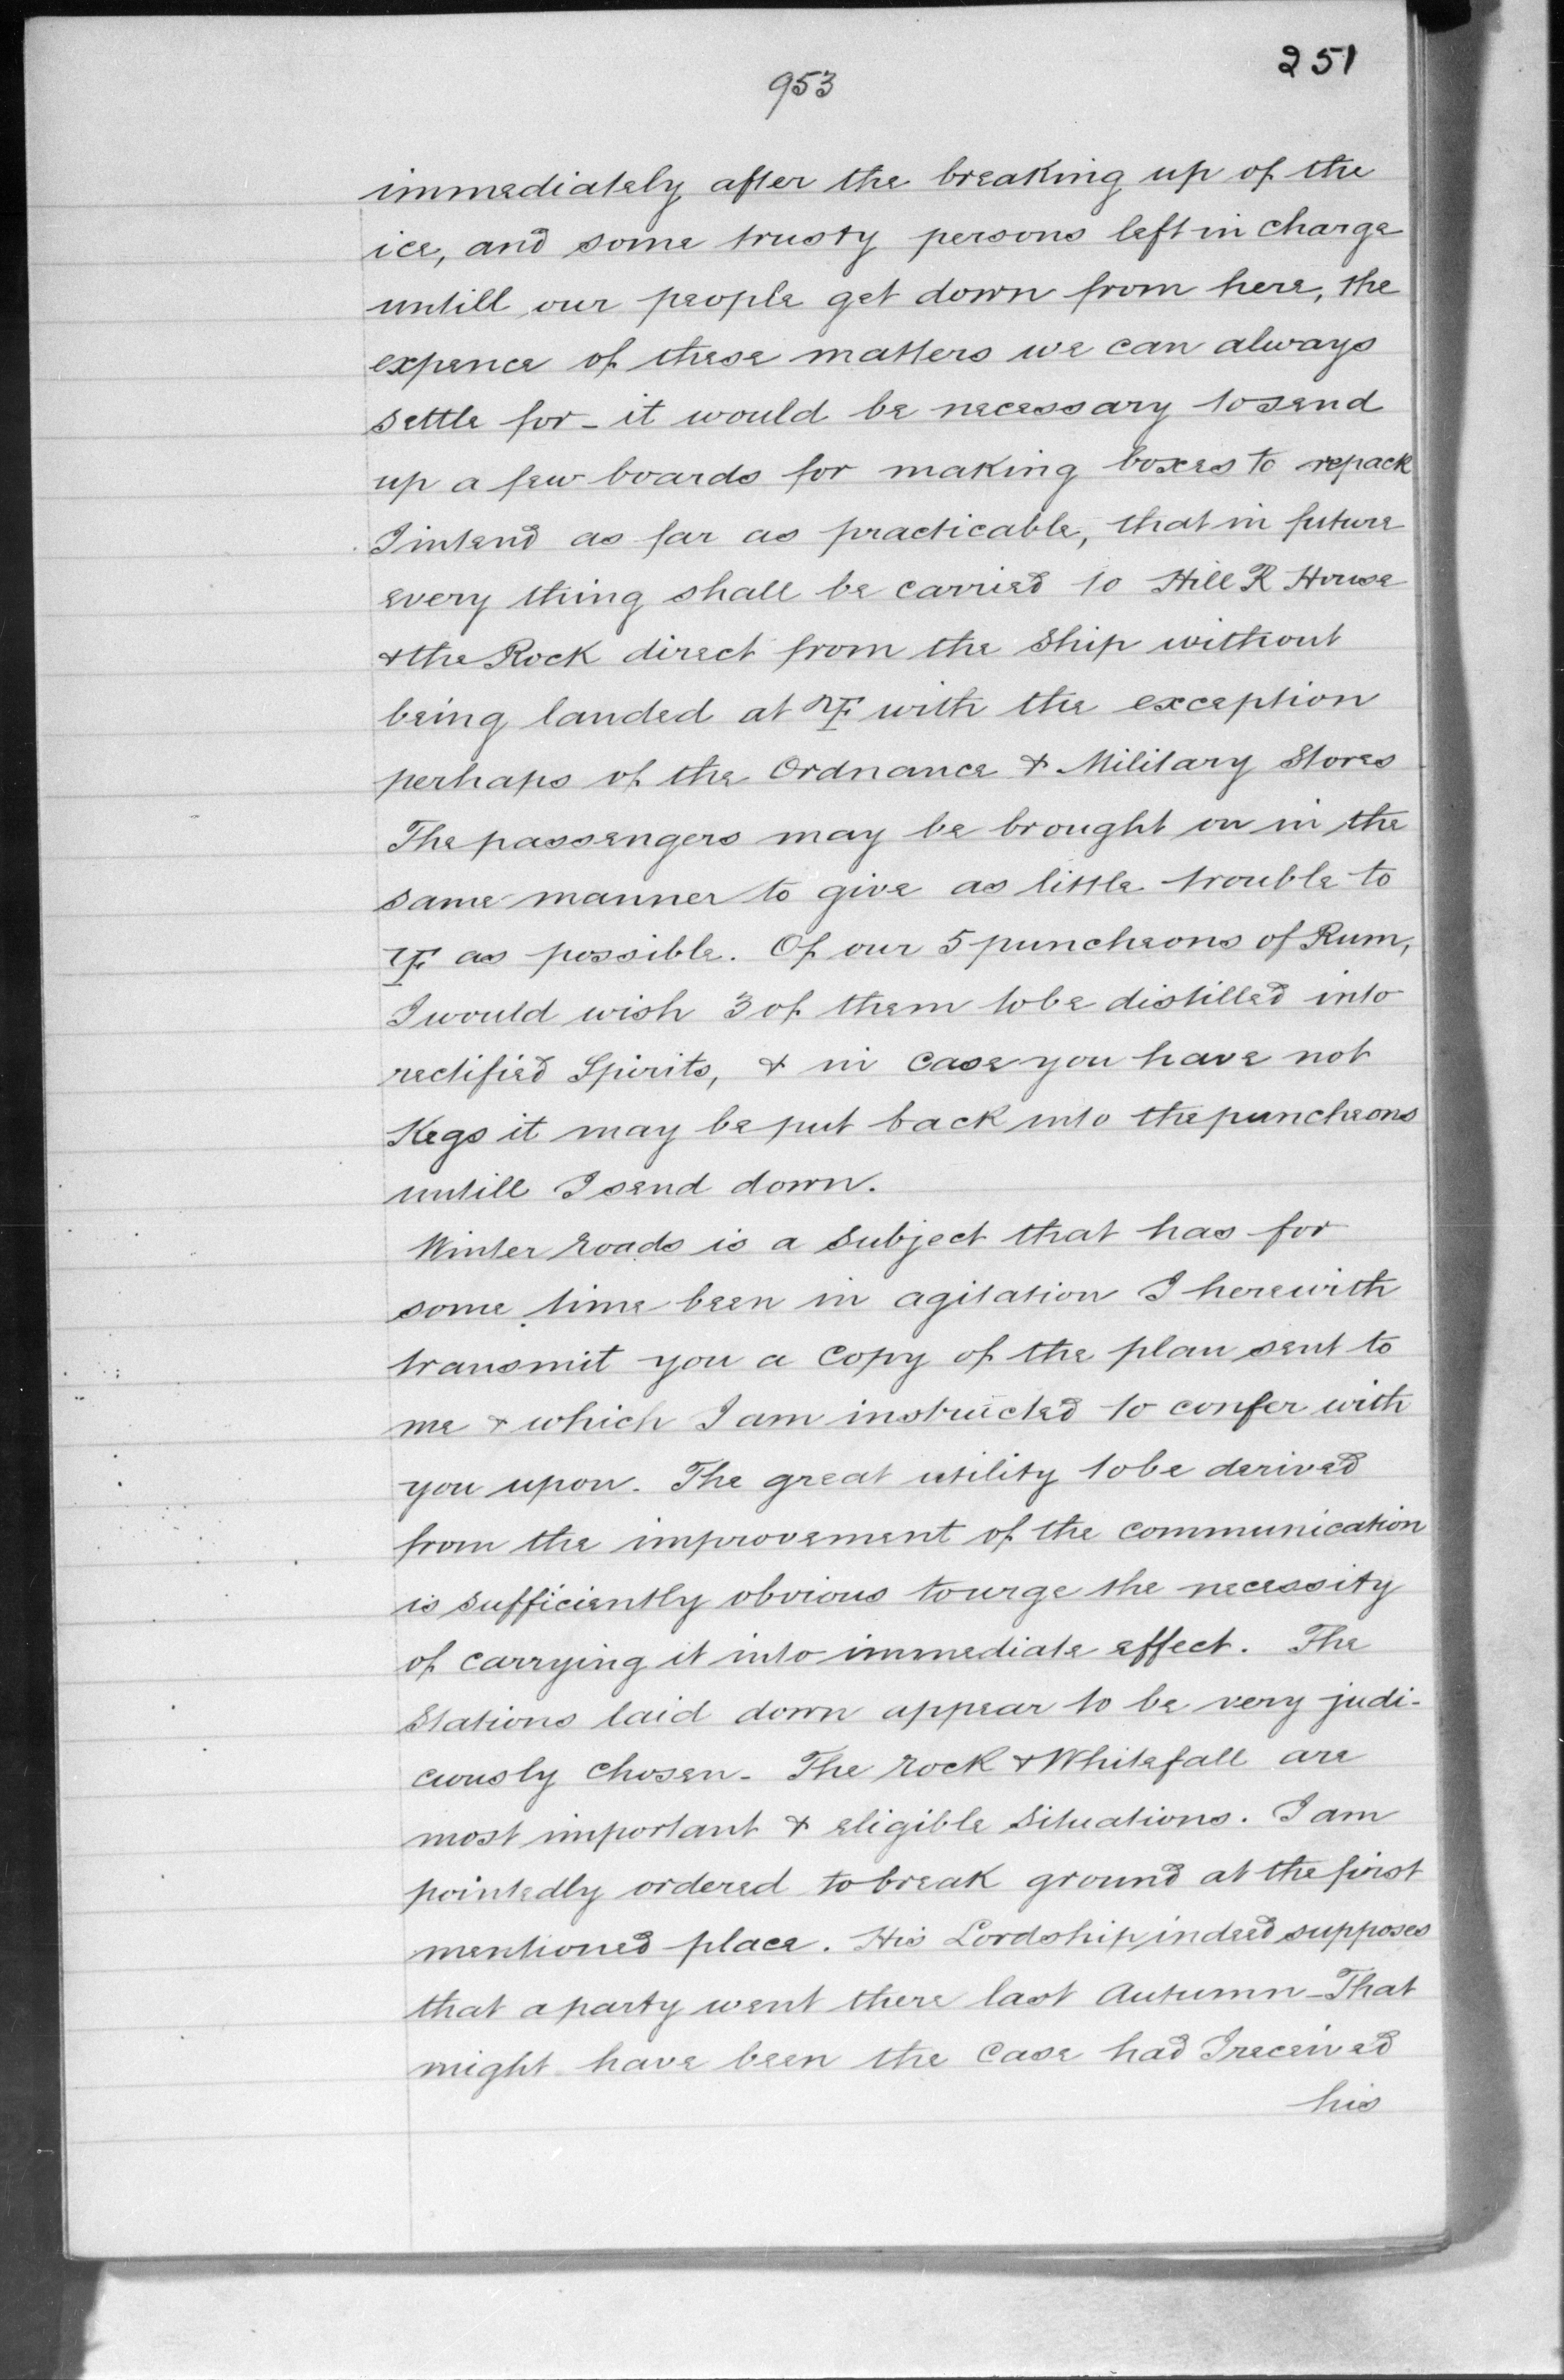 251
953
immediately after the breaking up of the
ice, and some trusty persons left in charge
untill our people get down from here, the
expence of these matters we can always
settle for - it would be necessary to send
up a few boards for making boxes to repack
I intend as far as practicable, that in future
every thing shall be carried to Hill R House
& the Rock direct from the Ship without
being landed at YF with the exception
perhaps of the Ordnance & Military Stores
The passengers may be brought on in the
same manner to give as little trouble to
YF as possible. Of our 5 puncheons of Rum,
I would wish 3 of them to be distilled into
rectified Spirits, & in case you have not
Kegs it may be put back into the puncheons
untill I send down.
Winter roads is a subject that has for
some time been in agitation I herewith
transmit you a Copy of the plan sent to
me & which I am instructed to confer with
you upon. The great utility to be derived
from the improvement of the communication
is sufficiently obvious to urge the necessity
of carrying it into immediate effect. The
Stations laid down appear to be very judi-
ciously chosen - The rock & Whitefall are
most important & eligible situations. I am
pointedly ordered to break ground at the first
mentioned place. His Lordship, indeed supposes
that a party went there last Autumn - That
might have been the Case had I received
his